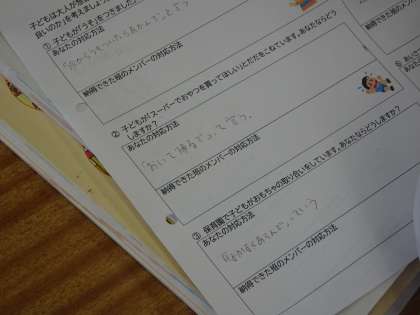 子どもは大人が思
良いのか」を考えましょう
① 子どもが「うそ」をつきました。
あなたの対応方法
納得できた他のメンバーの対応方法
② 子どもが「スーパーでおやつを買ってほしい」とだだをこねています。あなたならどう
しますか？
あなたの対応方法
「おいて帰るで」って言う。
納得できた他のメンバーの対応方法
③ 保育園で子どもがおもちゃの取り合いをしています。あなたならどうしますか？
あなたの対応方法
納得できた他のメンバーの対応方法